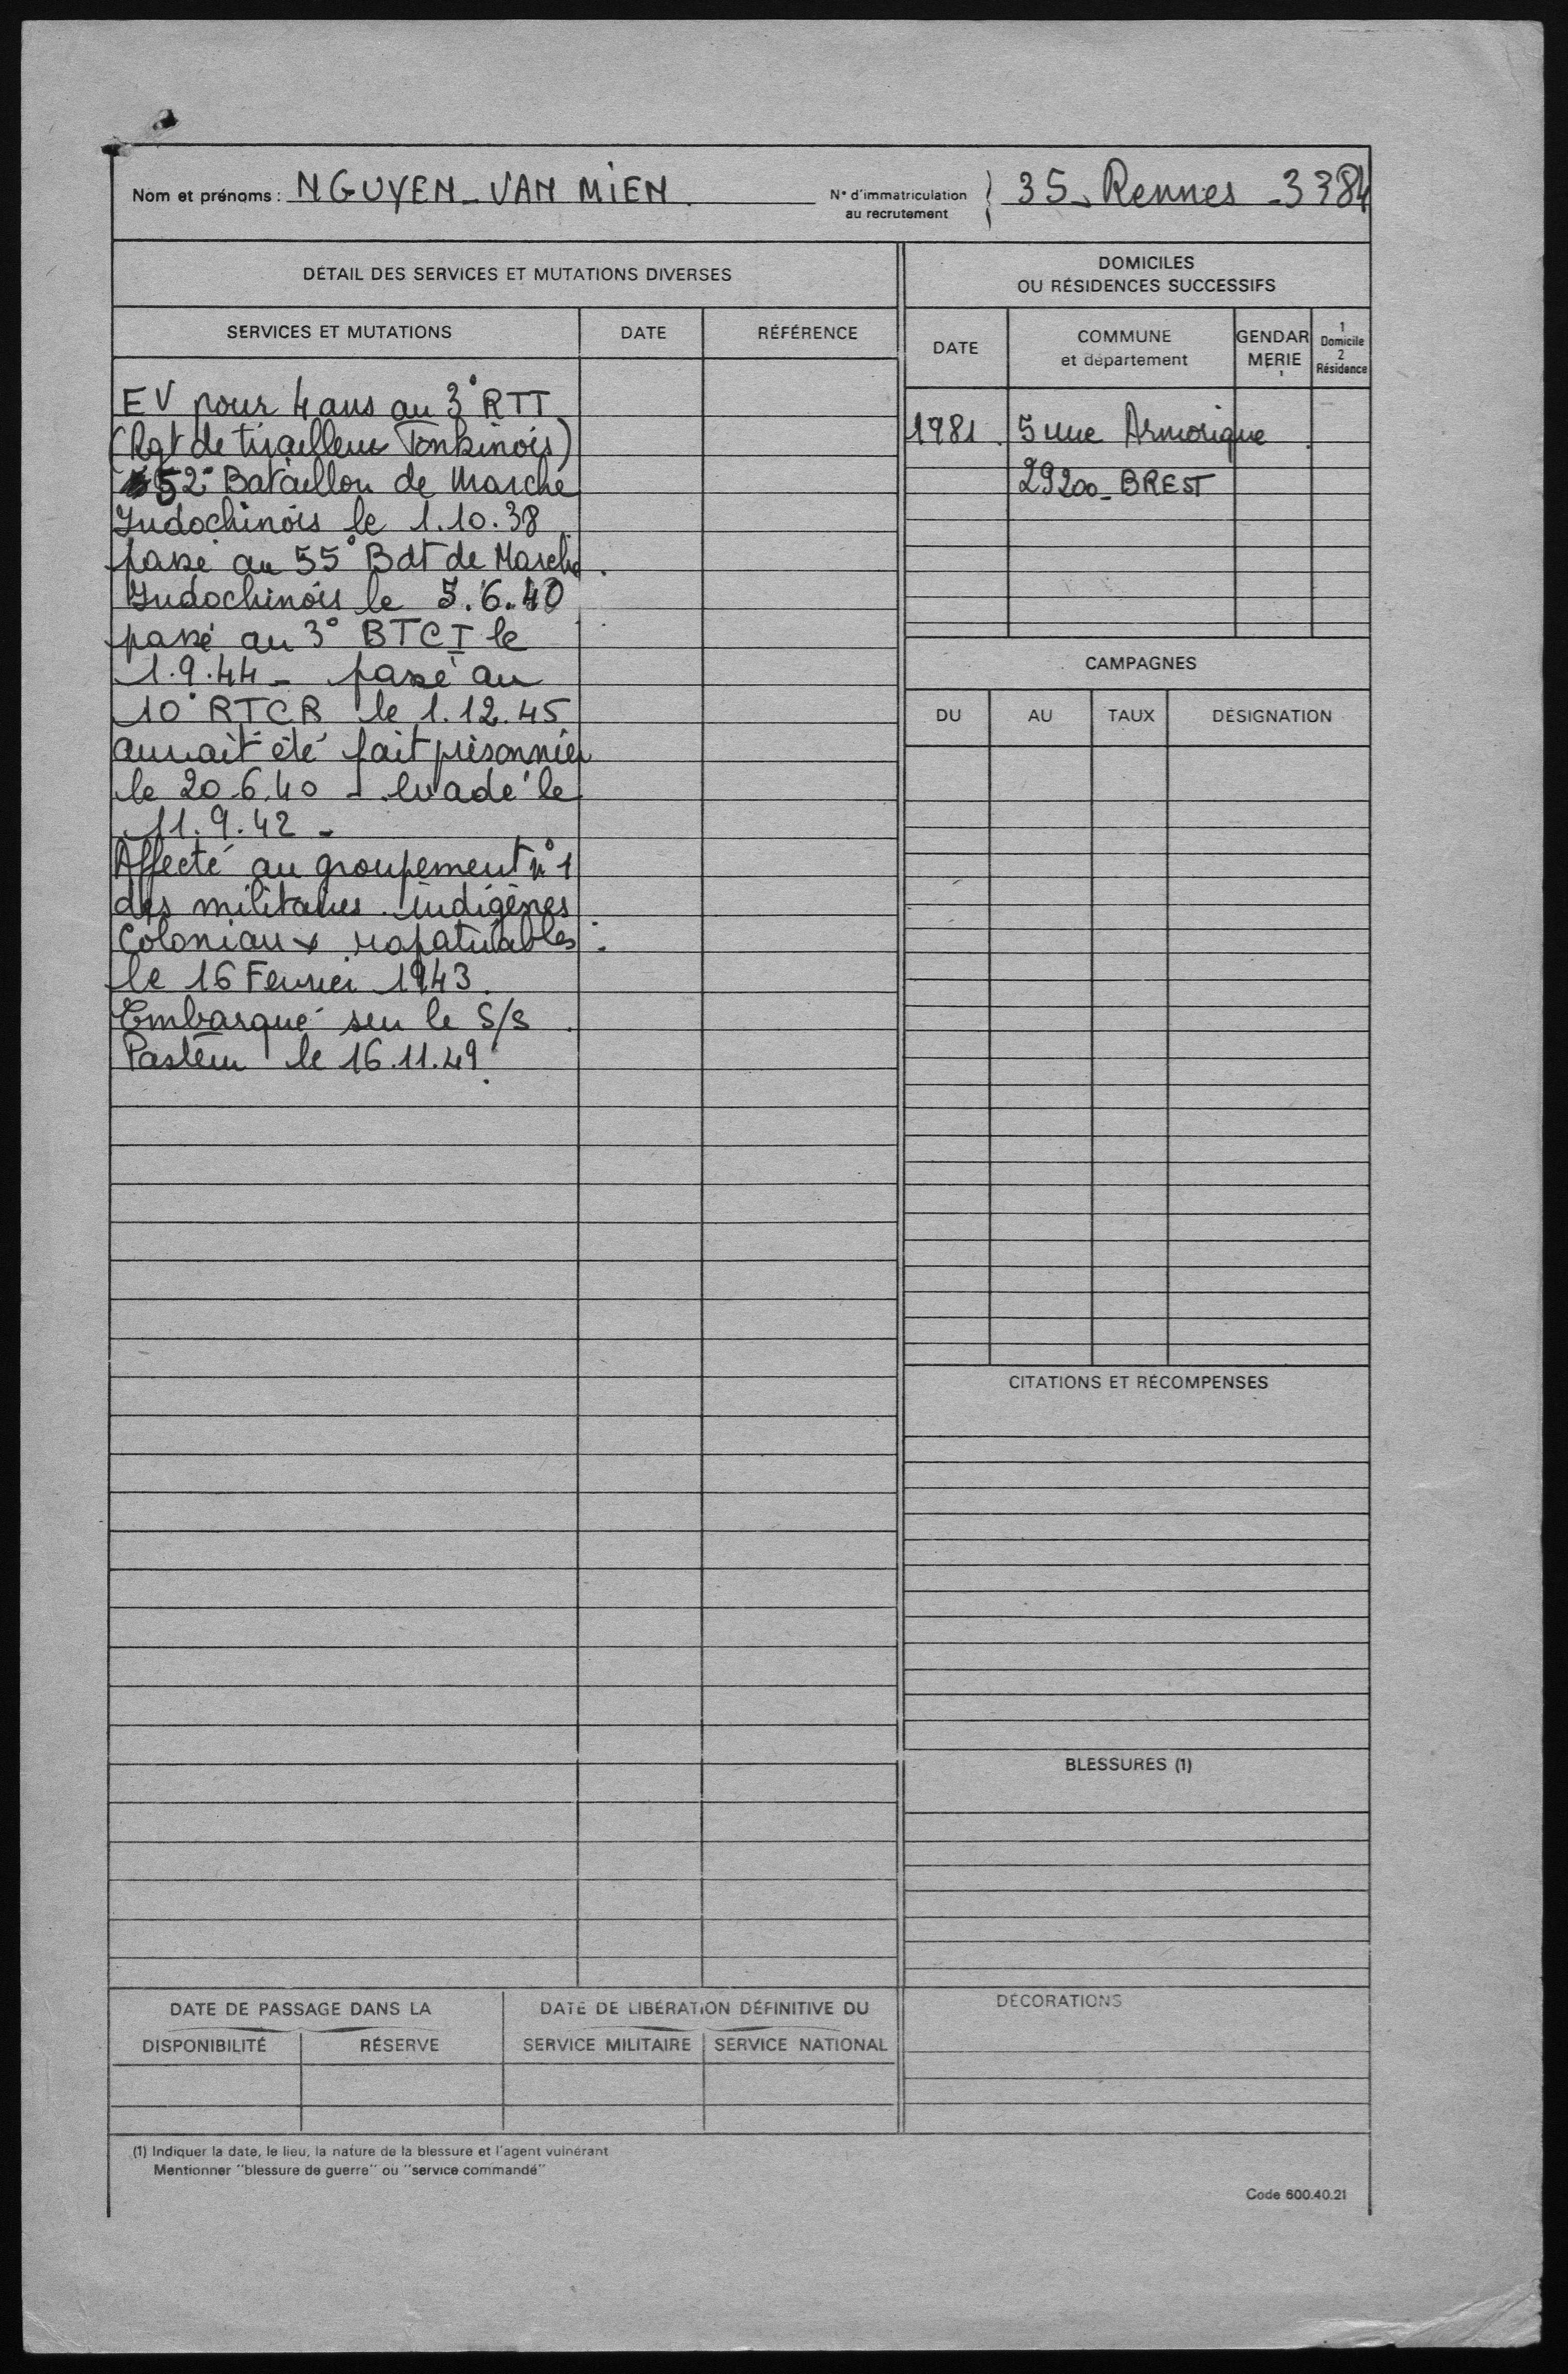 Nom et prénoms : NGUYEN_VAN MIEN.
N° d'immatriculation au recrutement } 35_Rennes_3384
DÉTAIL DES SERVICES ET MUTATIONS DIVERSES
SERVICES ET MUTATIONS
DATE
RÉFÉRENCE
EV pour 4 ans au 3° RTT
(Rgt de tirailleur Tonkinois)
52° Bataillon de Marche
Indochinois le 1.10.38
passé au 55° Bat de Marche
Indochinois le 5.6.40
passé au 3° BTCI le
1.9.44 - passé au
10° RTCR le 1.12.45
aurait été fait prisonnier
le 20.6.40 - evadé le
11.9.42 -
Affecté au groupement n°1
des militaires indigènes
Coloniaux rapatriables
le 16 Fevrier 1943.
Embarqué sur le S/S
Pasteur le 16.11.49
DOMICILES
OU RÉSIDENCES SUCCESSIFS
DATE
COMMUNE
et département
GENDAR
MERIE
1
Domicile
2
Résidence
1981. 5 rue Armorique
29200_BREST
CAMPAGNES
DU
AU
TAUX
DÉSIGNATION
CITATIONS ET RÉCOMPENSES
BLESSURES (1)
DATE DE PASSAGE DANS LA
DISPONIBILITÉ
RÉSERVE
DATE DE LIBÉRATION DÉFINITIVE DU
SERVICE MILITAIRE
SERVICE NATIONAL
DÉCORATIONS
(1) Indiquer la date, le lieu, la nature de la blessure et l'agent vulnérant
Mentionner "blessure de guerre" ou "service commandé"
Code 600.40.21